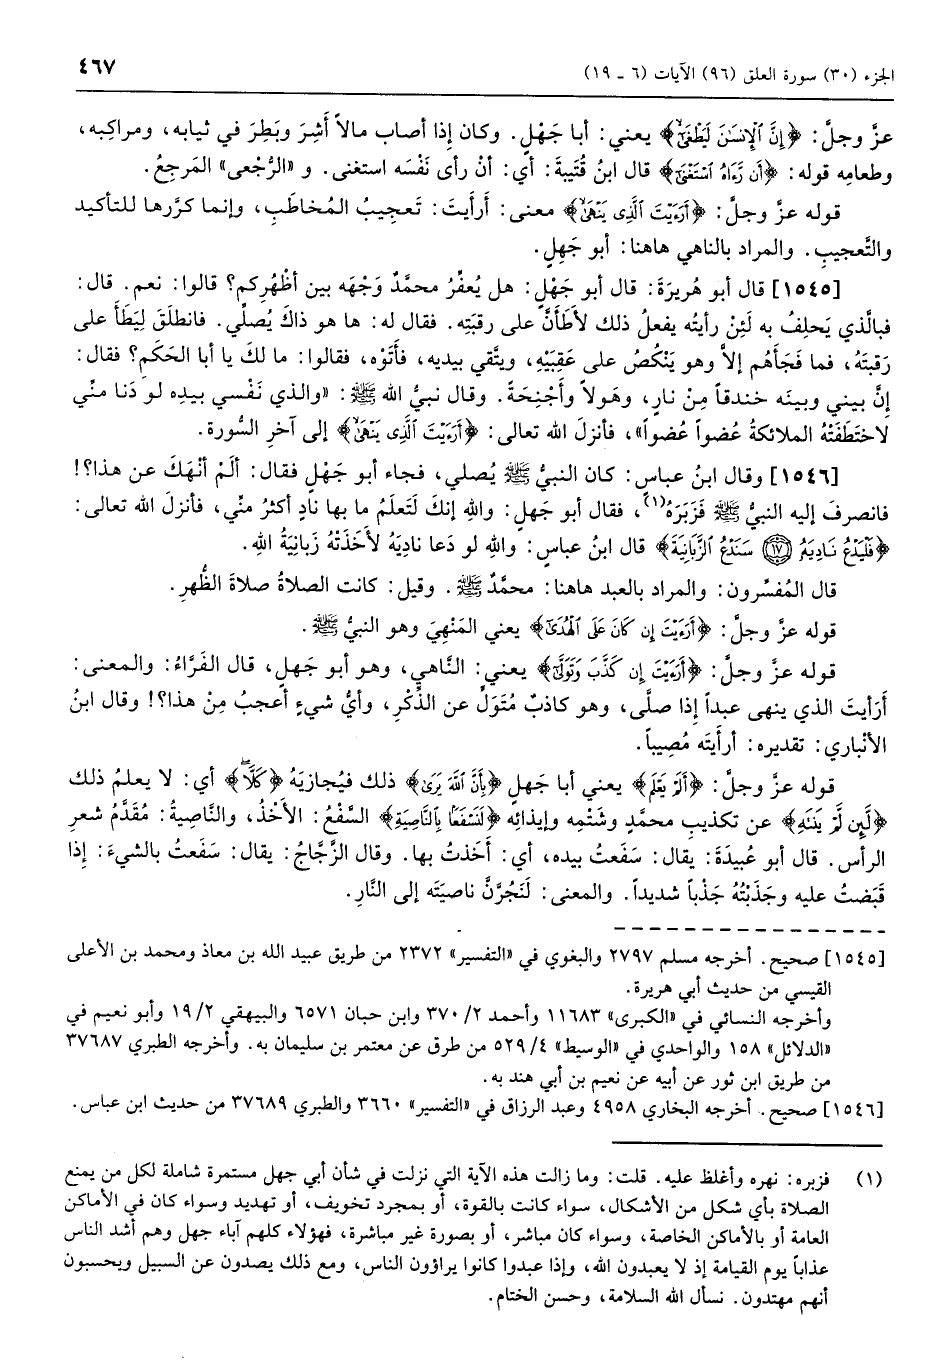 الجزء (٣٠) سورة العلق (٩٦) الآيات (٦ ـ ١٩) ٤٦٧
عزَّ وجلَّ: ﴿إِنَّ ٱلْإِنسَٰنَ لَيَطْغَىٰٓ﴾ يعني: أبا جَهْلٍ. وكان إذا أصاب مالاً أَشِرَ وبَطِرَ في ثيابه، ومراكِبه،
وطعامِه قوله: ﴿أَن رَّءَاهُ ٱسْتَغْنَىٰٓ﴾ قال ابنُ قُتَيبة: أي: أنْ رأى نَفْسَه استغنى. و «الرُّجْعى» المَرجِعُ.
قوله عزَّ وجلَّ: ﴿أَرَءَيْتَ ٱلَّذِى يَنْهَىٰ﴾ معنى: أَرأيتَ: تَعجِيبُ المُخاطَبِ، وإنما كرَّرها للتأكيد
والتَّعجيبِ. والمراد بالناهي هاهنا: أبو جَهلٍ.
[١٥٤٥] قال أبو هريرَة: قال أبو جَهْلٍ: هل يُعفِّرُ محمَّدٌ وَجْهَه بين أظْهُرِكم؟ قالوا: نعم. قال:
فبالَّذي يَحلِفُ به لَئِنْ رأيتُه يفعلُ ذلك لأَطَأَنَّ على رقبَتِه. فقال له: ها هو ذاكَ يُصلِّي. فانطلَقَ لِيَطَأَ على
رَقبتَهُ، فما فَجَأَهُم إلاَّ وهو يَنْكُصُ على عَقِبَيْهِ، ويتَّقي بيديه، فأَتَوْه، فقالوا: ما لكَ يا أبا الحَكَمِ؟ فقال:
إنَّ بيني وبينَه خندقاً مِنْ نارٍ، وهَولاً وأَجْنِحَةً. وقال نبيُّ الله ﷺ: «والذي نَفْسي بيدِه لو دَنا منِّي
لاخْتَطَفَتْهُ الملائكةُ عُضواً عُضواً»، فأنزلَ الله تعالى: ﴿أَرَءَيْتَ ٱلَّذِى يَنْهَىٰ﴾ إلى آخرِ السُّورة.
[١٥٤٦] وقال ابنُ عباس: كان النبيُّ ﷺ يُصلي، فجاء أبو جَهْلٍ فقال: ألَمْ أنْهَكَ عن هذا؟!
فانصرفَ إليه النبيُّ ﷺ فَزَبَرَهُ(١)، فقال أبو جَهلٍ: واللهِ إنكَ لَتَعلَمُ ما بها نادٍ أكثرُ منِّي، فأنزلَ الله تعالى:
﴿فَلْيَدْعُ نَادِيَهُۥ ۝١٧ سَنَدْعُ ٱلزَّبَانِيَةَ﴾ قال ابنُ عباسٍ: والله لو دَعا ناديَهُ لأخَذَتْهُ زَبانِيَةُ اللهِ.
قال المُفسِّرون: والمراد بالعبد هاهنا: محمَّدٌ ﷺ. وقيل: كانت الصلاةُ صلاةَ الظُّهر.
قوله عزَّ وجلَّ: ﴿أَرَءَيْتَ إِن كَانَ عَلَى ٱلْهُدَىٰٓ﴾ يعني المَنْهِيَ وهو النبيُّ ﷺ.
قوله عزَّ وجلَّ: ﴿أَرَءَيْتَ إِن كَذَّبَ وَتَوَلَّىٰٓ﴾ يعني: النَّاهي، وهو أبو جَهلٍ، قال الفَرَّاءُ: والمعنى:
أَرَأيتَ الذي ينهى عبداً إذا صلَّى، وهو كاذبٌ مُتَولٍّ عن الذِّكْرِ، وأيُّ شيءٍ أعجبُ مِنْ هذا؟! وقال ابنُ
الأنباري: تقديره: أرأيتَه مُصِيباً.
قوله عزَّ وجلَّ: ﴿أَلَمْ يَعْلَم﴾ يعني أبا جَهلٍ ﴿بِأَنَّ ٱللَّهَ يَرَىٰ﴾ ذلك فيُجازيَهُ ﴿كَلَّا﴾ أي: لا يعلمُ ذلك
﴿لَئِن لَّمْ يَنتَهِ﴾ عن تكذيبِ محمَّدٍ وشَتْمِه وإيذائِه ﴿لَنَسْفَعًۢا بِٱلنَّاصِيَةِ﴾ السَّفْعُ: الأخْذُ، والنَّاصِيةُ: مُقَدَّمُ شعرِ
الرأس. قال أبو عُبيدَةَ: يقال: سَفَعتُ بيده، أي: أخَذتُ بها. وقال الزَّجَّاجُ: يقال: سَفَعتُ بالشيءِ: إذا
قَبَضتُ عليه وجَذَبْتُهُ جَذْباً شديداً. والمعنى: لَنَجُرَّنَّ ناصيَته إلى النَّارِ.
[١٥٤٥] صحيح. أخرجه مسلم ٢٧٩٧ والبغوي في «التفسير» ٢٣٧٢ من طريق عبيد الله بن معاذ ومحمد بن الأعلى
القيسي من حديث أبي هريرة.
وأخرجه النسائي في «الكبرى» ١١٦٨٣ وأحمد ٢/ ٣٧٠ وابن حبان ٦٥٧١ والبيهقي ٢/ ١٩ وأبو نعيم في
«الدلائل» ١٥٨ والواحدي في «الوسيط» ٤/ ٥٢٩ من طرق عن معتمر بن سليمان به. وأخرجه الطبري ٣٧٦٨٧
من طريق ابن ثور عن أبيه عن نعيم بن أبي هند به.
[١٥٤٦] صحيح. أخرجه البخاري ٤٩٥٨ وعبد الرزاق في «التفسير» ٣٦٦٠ والطبري ٣٧٦٨٩ من حديث ابن عباس.
(١) فزبره: نهره وأغلظ عليه. قلت: وما زالت هذه الآية التي نزلت في شأن أبي جهل مستمرة شاملة لكل من يمنع
الصلاة بأي شكل من الأشكال، سواء كانت بالقوة، أو بمجرد تخويف، أو تهديد وسواء كان في الأماكن
العامة أو بالأماكن الخاصة، وسواء كان مباشر، أو بصورة غير مباشرة، فهؤلاء كلهم آباء جهل وهم أشد الناس
عذاباً يوم القيامة إذ لا يعبدون الله، وإذا عبدوا كانوا يراؤون الناس، ومع ذلك يصدون عن السبيل ويحسبون
أنهم مهتدون. نسأل الله السلامة، وحسن الختام.